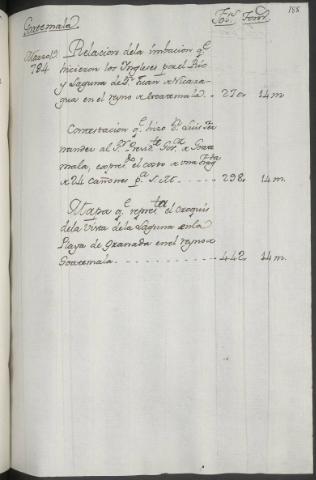 188
Guatemala Fos. Tom.
Marzo,, 
784 Relacion dela imbacion qe.
hicieron los Yngleses por el Rio
y Laguna de Sn. Juan de Nicara-
gua en el reyno de Goatemala. - 270, 14 m.
Contextacion qe. hizo Dn. Luis Fer-
nandez al Sr. Preside. Gov.r de Goate-
mala, expresdo. el costo de una Fragta.
de 24 cañones pa. S. M. - - - - - 298, 14 m.
Mapa qe. represta. el croquis
dela Vista dela Laguna enla
Playa de Granada en el reyno de
Goatemala. - - - - - - - 442, 14 m.